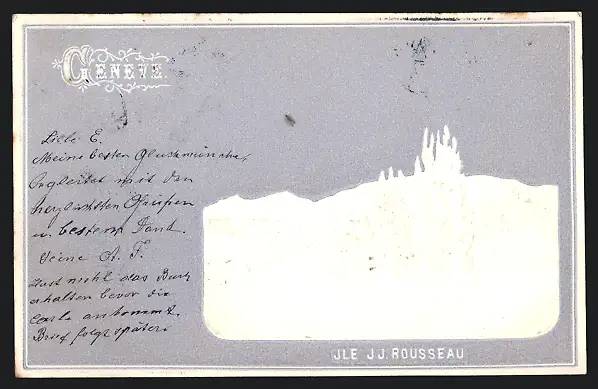 GENÈVE
Liebe E.
Meine besten Glückwünsche,
begleitet mit den
herzlichsten Grüßen
u. besten Dank.
Deine A. F.
nicht das Buch
erhalten bevor die
Carte ankommt.
Brief folgt später.
JLE JJ. ROUSSEAU